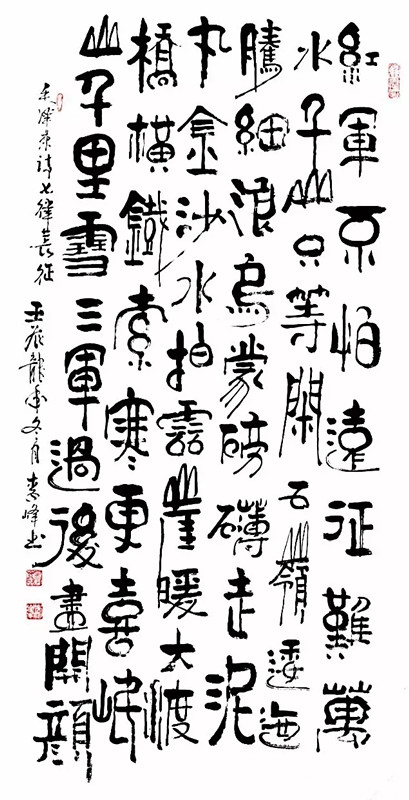 紅軍不怕遠征難萬
水千山只等閑五嶺逶迤
騰細浪烏蒙磅礴走泥
丸金沙水拍雲崖暖大渡
橋橫鐵索寒更喜岷
山千里雪三軍過後盡開顏
毛澤東詩七律長征
壬辰龍年冬月 峰书